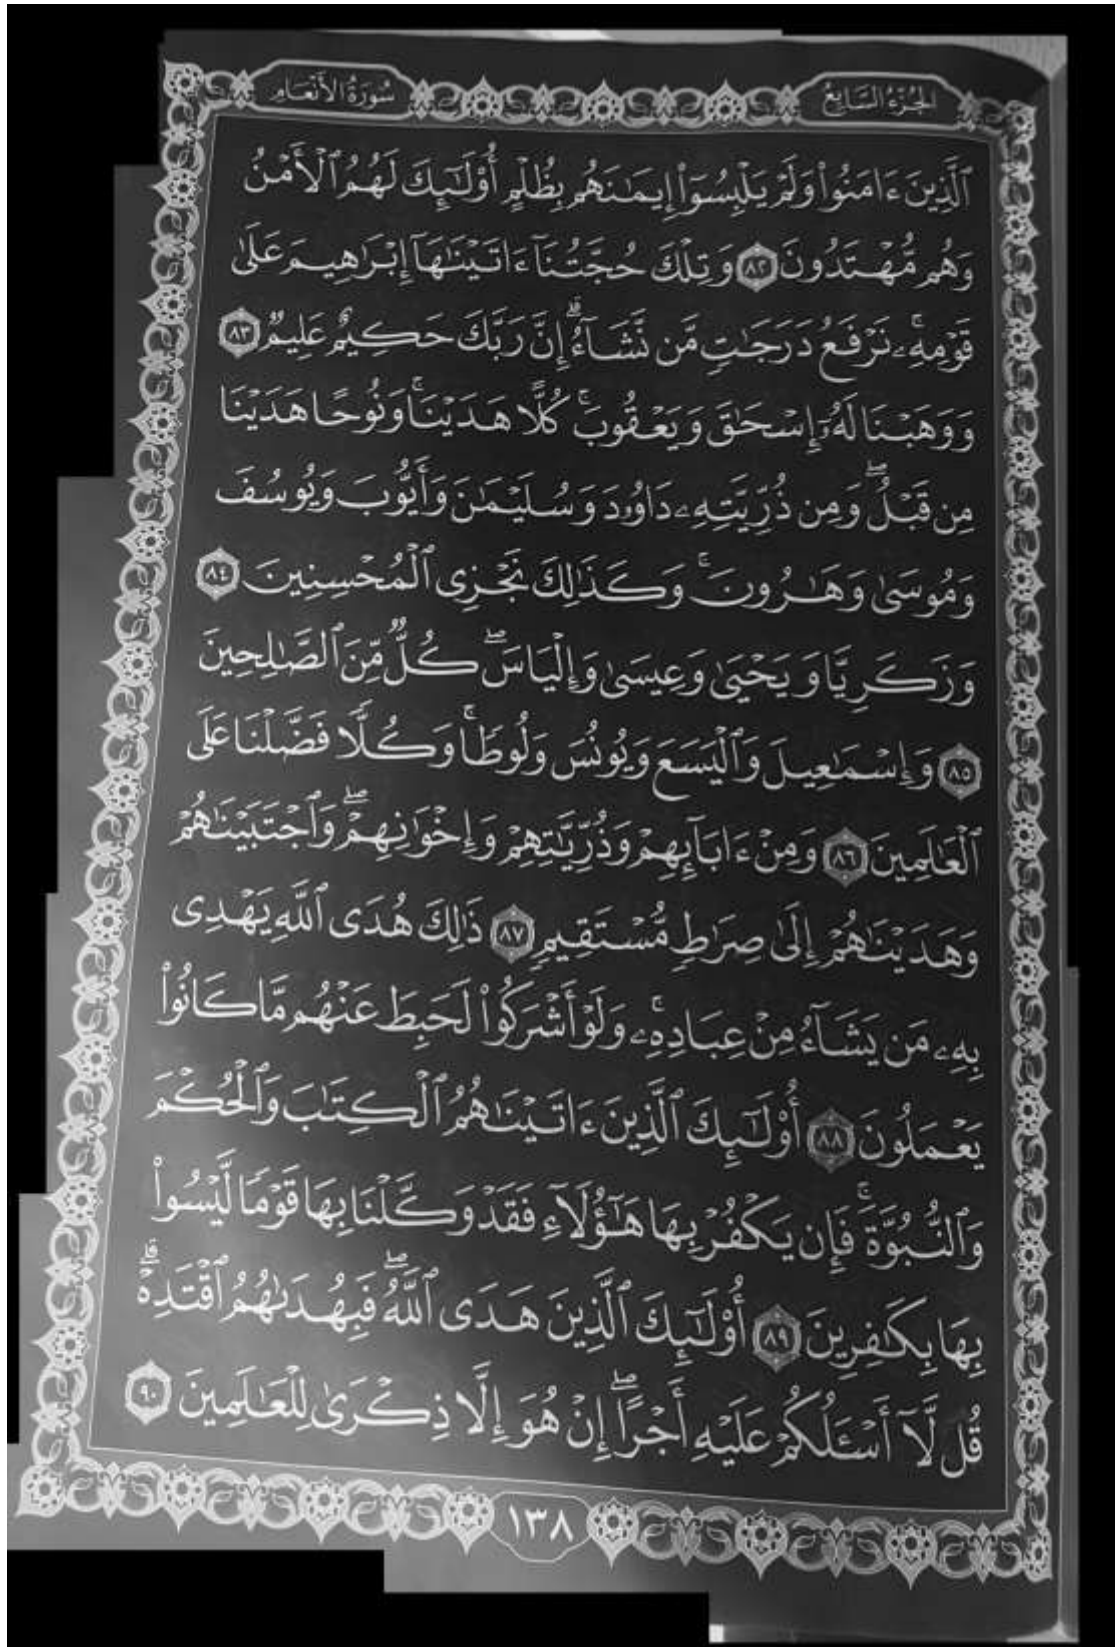 الجزء السابع
سورة الأنعام
ٱلَّذِينَ ءَامَنُوا۟ وَلَمْ يَلْبِسُوٓا۟ إِيمَٰنَهُم بِظُلْمٍ أُو۟لَٰٓئِكَ لَهُمُ ٱلْأَمْنُ
وَهُم مُّهْتَدُونَ ٨٢ وَتِلْكَ حُجَّتُنَآ ءَاتَيْنَٰهَآ إِبْرَٰهِيمَ عَلَىٰ
قَوْمِهِۦ ۚ نَرْفَعُ دَرَجَٰتٍ مَّن نَّشَآءُ ۗ إِنَّ رَبَّكَ حَكِيمٌ عَلِيمٌ ٨٣
وَوَهَبْنَا لَهُۥٓ إِسْحَٰقَ وَيَعْقُوبَ ۚ كُلًّا هَدَيْنَا ۚ وَنُوحًا هَدَيْنَا
مِن قَبْلُ ۖ وَمِن ذُرِّيَّتِهِۦ دَاوُۥدَ وَسُلَيْمَٰنَ وَأَيُّوبَ وَيُوسُفَ
وَمُوسَىٰ وَهَٰرُونَ ۚ وَكَذَٰلِكَ نَجْزِى ٱلْمُحْسِنِينَ ٨٤
وَزَكَرِيَّا وَيَحْيَىٰ وَعِيسَىٰ وَإِلْيَاسَ ۖ كُلٌّ مِّنَ ٱلصَّٰلِحِينَ
٨٥ وَإِسْمَٰعِيلَ وَٱلْيَسَعَ وَيُونُسَ وَلُوطًا ۚ وَكُلًّا فَضَّلْنَا عَلَى
ٱلْعَٰلَمِينَ ٨٦ وَمِنْ ءَابَآئِهِمْ وَذُرِّيَّٰتِهِمْ وَإِخْوَٰنِهِمْ ۖ وَٱجْتَبَيْنَٰهُمْ
وَهَدَيْنَٰهُمْ إِلَىٰ صِرَٰطٍ مُّسْتَقِيمٍ ٨٧ ذَٰلِكَ هُدَى ٱللَّهِ يَهْدِى
بِهِۦ مَن يَشَآءُ مِنْ عِبَادِهِۦ ۚ وَلَوْ أَشْرَكُوا۟ لَحَبِطَ عَنْهُم مَّا كَانُوا۟
يَعْمَلُونَ ٨٨ أُو۟لَٰٓئِكَ ٱلَّذِينَ ءَاتَيْنَٰهُمُ ٱلْكِتَٰبَ وَٱلْحُكْمَ
وَٱلنُّبُوَّةَ ۚ فَإِن يَكْفُرْ بِهَا هَٰٓؤُلَآءِ فَقَدْ وَكَّلْنَا بِهَا قَوْمًا لَّيْسُوا۟
بِهَا بِكَٰفِرِينَ ٨٩ أُو۟لَٰٓئِكَ ٱلَّذِينَ هَدَى ٱللَّهُ ۖ فَبِهُدَىٰهُمُ ٱقْتَدِهْ ۗ
قُل لَّآ أَسْـَٔلُكُمْ عَلَيْهِ أَجْرًا ۖ إِنْ هُوَ إِلَّا ذِكْرَىٰ لِلْعَٰلَمِينَ ٩٠
١٣٨